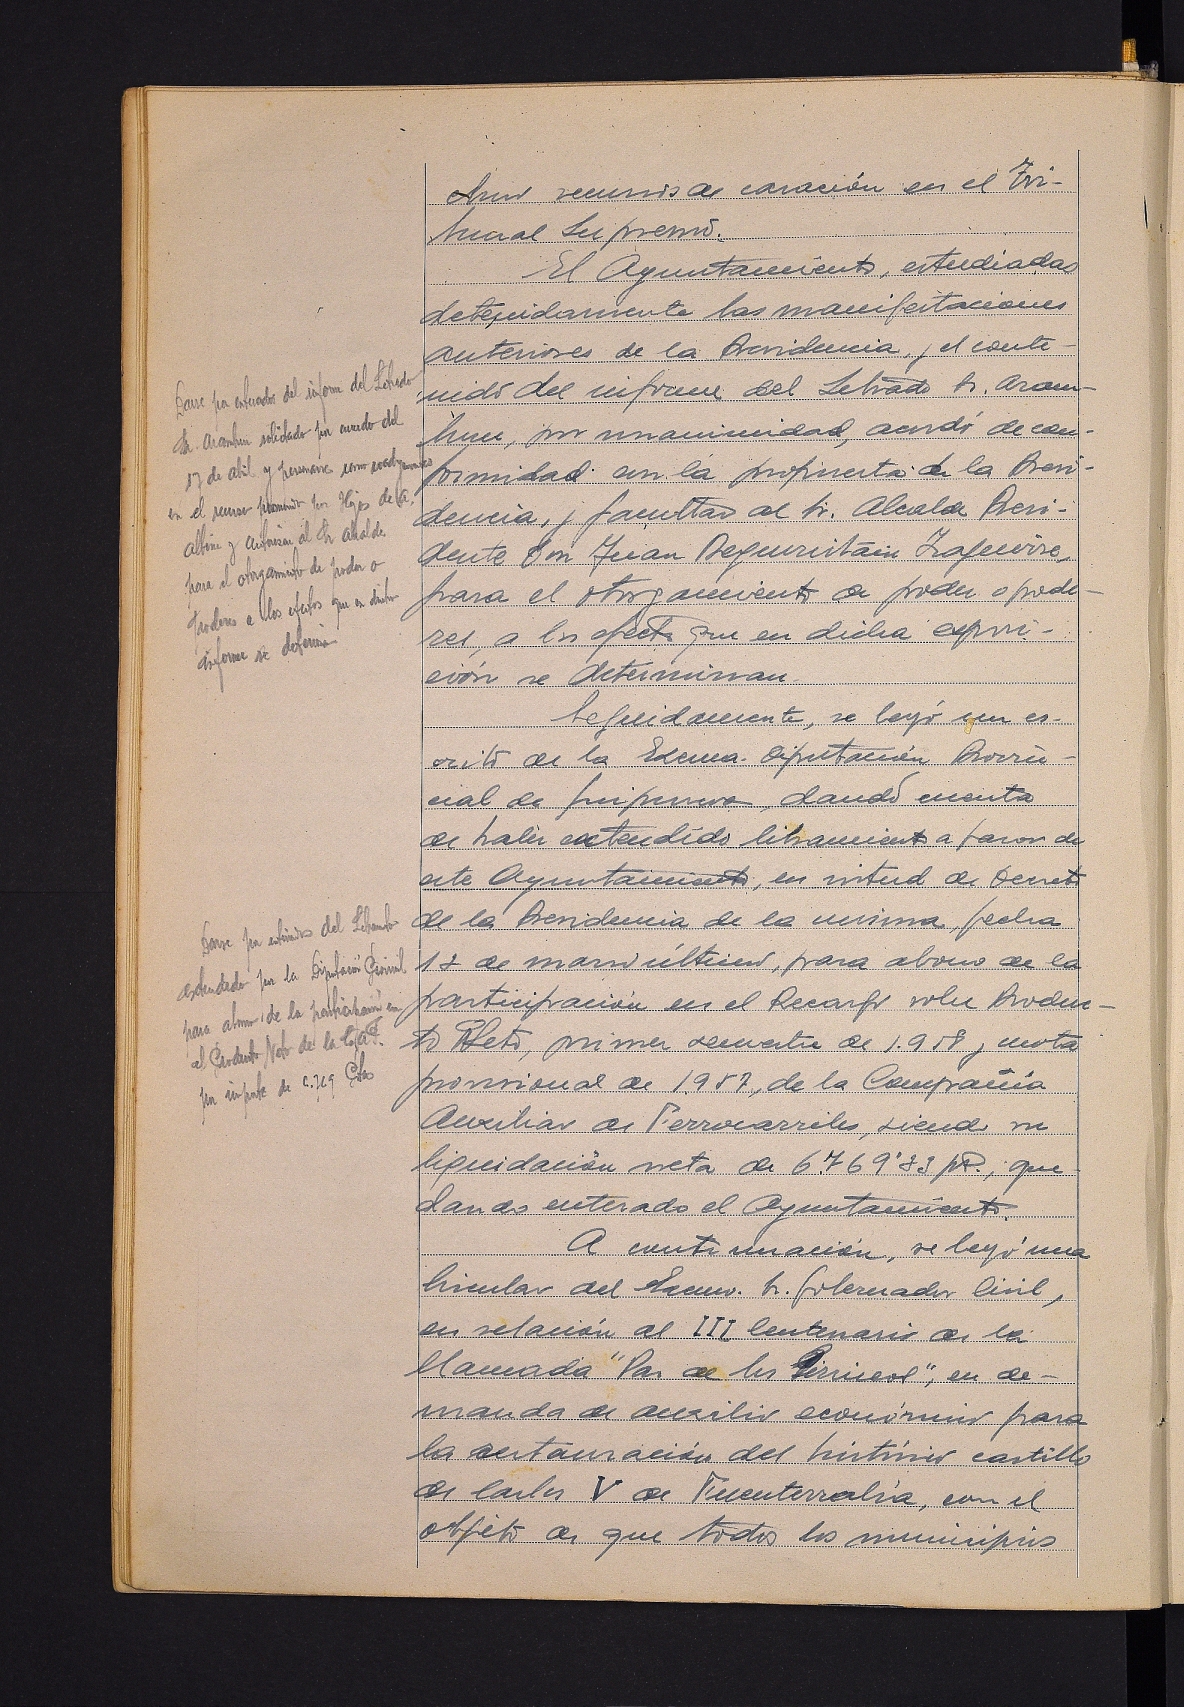 recurso de casación en el Tri-
bunal Supremo.
El Ayuntamiento, estudiadas
detenidamente las manifestaciones
anteriores de la Presidencia, y el conte-
nido del informe del Letrado Sr. Aram-
buru, por unanimidad, acordó de con-
formidad con la propuesta de la Presi-
dencia, y facultar al Sr. Alcalde Presi-
dente Don Juan
para el otorgamiento de poder o pode-
res, a los efectos que en dicha exposi-
ción se determinan.
Seguidamente, se leyó un es-
crito de la Excma. Diputación Provin-
cial de Guipuzcoa, dando cuenta
de haber extendido libramiento a favor de
este Ayuntamiento, en virtud de Decreto
de la Presidencia de la misma, fecha
de marzo último, para abono de la
participación en el Recargo sobre Produc-
to Neto, primer semestre de 1.958 y cuota
provisional de 1.957, de la Compañía
Auxiliar de Ferrocarriles, siendo su
liquidación neta de 6.769'33 pts., que-
dando enterado el Ayuntamiento.
A continuación, se leyó una
Circular del Excmo. Sr. Gobernador Civil,
en relación al III Centenario de la
llamada "Paz de los Pirineos", en de-
manda de auxilio económico para
la restauración del histórico castillo
de Carlos V de Fuenterrabía, con el
objeto de que todos los municipios
Darse por enterados del informe del Letrado
Sr. Aramburu solicitado por acuerdo del
17 de abril y personarse como coadyuvantes
en el recurso promovido por Hijos de A.
Albine y autorizar al Sr Alcalde
para el otorgamiento de poder o
poderes a los efectos que en dicho
informe se determina
Darse por enterados del Libramiento
extendido por la Diputación Provincial
para abono de la participación en
el Producto Neto de la C.A.F.
por importe de 6.769 Ptas